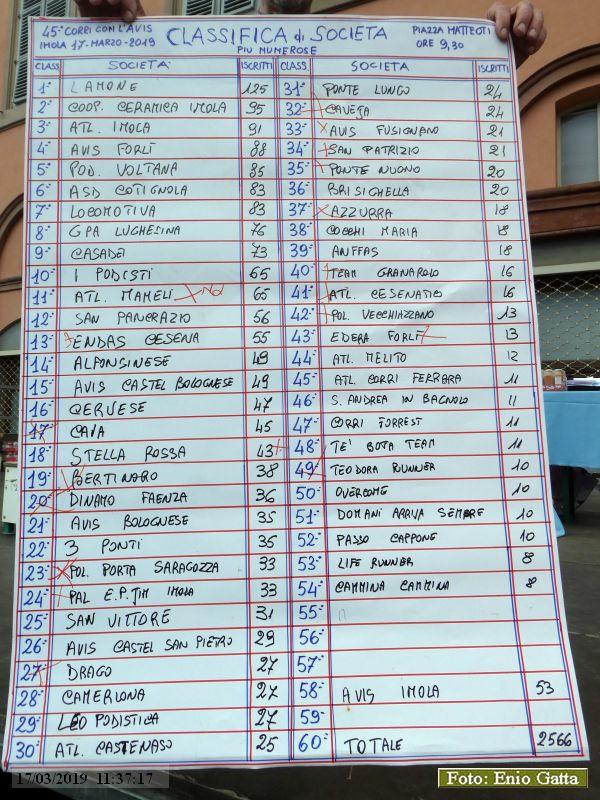 45° CORRI CON L'AVIS
IMOLA 17-MARZO-2019
CLASSIFICA di SOCIETA
PIU NUMEROSE
PIAZZA MATTEOTI
ORE 9,30
CLASS SOCIETA' ISCRITTI CLASS. SOCIETA ISCRITTI
1° LAMONE 125
2° COOP. CERAMICA IMOLA 95
3° ATL. IMOLA 91
4° AVIS FORLI 88
5° POD. VOLTANA 85
6° ASD COTIGNOLA 83
7° LOCOMOTIVA 83
8° GPA LUGHESINA 76
9° CASADEI 73
10° I PODISTI 65
11° ATL. MAMELI 65
12° SAN PANCRAZIO 56
13° ENDAS CESENA 55
14° ALFONSINESE 49
15° AVIS CASTEL BOLOGNESE 49
16° CERVESE 47
17° CAVA 45
18° STELLA ROSSA 43
19° BERTINORO 38
20° DINAMO FAENZA 36
21° AVIS BOLOGNESE 35
22° 3 PONTI 35
23° POL. PORTA SARAGOZZA 33
24° PAL E.P.JIM IMOLA 33
25° SAN VITTORE 31
26° AVIS CASTEL SAN PIETRO 29
27° DRAGO 27
28° CAMERLONA 27
29° LEO PODISTICA 27
30° ATL. CASTENASO 25
31° PONTE LUNGO 24
32° CAVEJA 24
33° AVIS FUSIGNANO 21
34° SAN PATRIZIO 21
35° PONTE NUOVO 20
36° BRISIGHELLA 20
37° AZZURRA 18
38° COCCHI MARIA 18
39° ANFFAS 18
40° TEAM GRANAROLO 16
41° ATL. CESENATICO 16
42° POL. VECCHIAZZANO 13
43° EDERA FORLI 13
44° ATL. MELITO 12
45° ATL. CORRI FERRARA 11
46° S. ANDREA IN BAGNOLO 11
47° CORRI FORREST 11
48° TE' BOTA TEAM 11
49° TEODORA RUNNER 10
50° OVERCOME 10
51° DOMANI ARRIVA SEMPRE 10
52° PASSO CAPPONE 10
53° LIFE RUNNER 8
54° CAMMINA CAMMINA 8
55°
56°
57°
58° AVIS IMOLA 53
59°
60° TOTALE 2566
17/03/2019 11:37:17
Foto: Enio Gatta